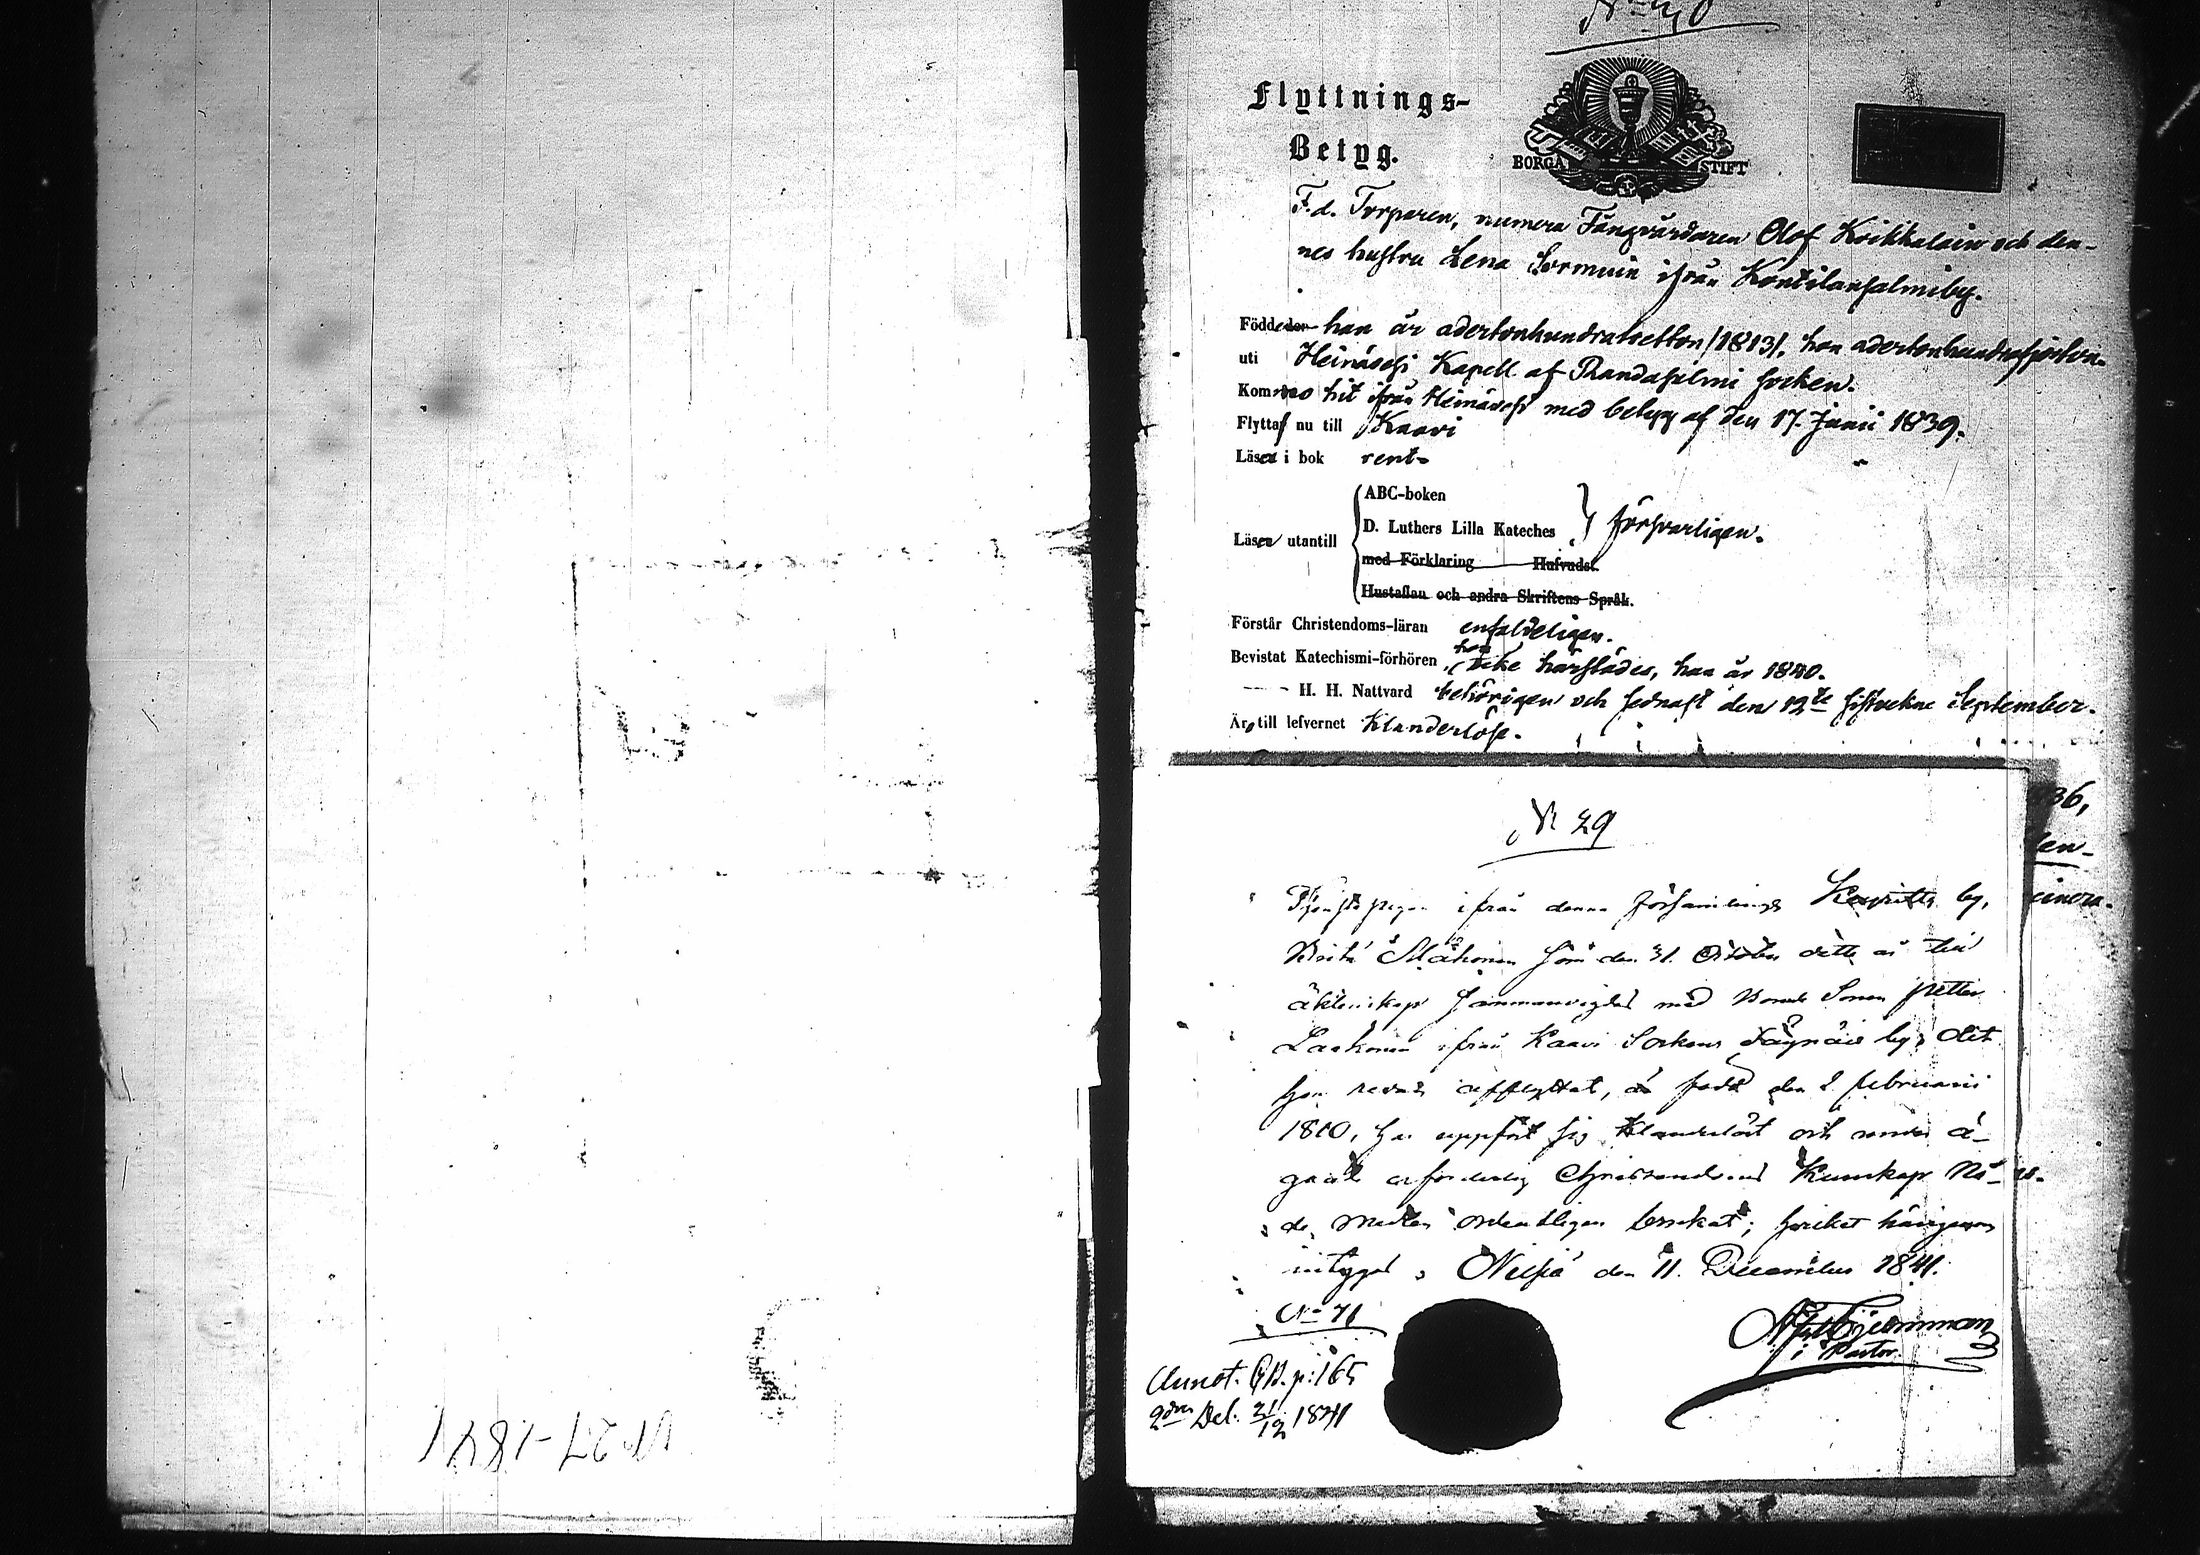 N 27-1841
No 40
Flyttnings-
Betyg.
BORGÅ STIFT
F.d. Torparen, numera Fångvårdaren Olof Koikkalain och den-
nes hustru Lena Sormuin ifrån Kontilansalmi by.
Födde den han år adertonhundratretton /1813/, hon adertonhundrafjorton
uti Heinävesi Kapell af Randasalmi socken.
Komne hit ifrån Heinävesi med betyg af den 17. Junii 1839.
Flytta nu till Kaavi
Läsa i bok rent.
ABC-boken
D. Luthers Lilla Kateches
Läsa utantill försvarligen.
med Förklaring Hufvudst.
Hustaflan och andra Skriftens Språk.
Förstår Christendoms-läran enfaldeligen.
hon
Bevistat Katechismi-förhören icke härstädes, han år 1840.
H. H. Nattvard behörigen och sednast den 12te sistvekne September.
Äro till lefvernet Klanderlöse.
36,
den-
N 29
Tjenstepigan ifrån denna Församlings by,
Brita som den 31. October detta år till
äktenskap sammanvigdes med Bonde Sonen Petter
Laakonen ifrån Kaavi Sockens by, dit
hon redan afflyttat, är född den 2 februarii
1810, har uppfört sig klanderlöst och under å-
gnat erforderlig Christendoms Kunskap Nå-
de Medlen ordentligen besökat; hvilket härigenom
intygas, Nilsiä den 11. December 1841.
No 71
i Pastor.
Annot. C.B. p: 165
2dra Del. 21/12 1841